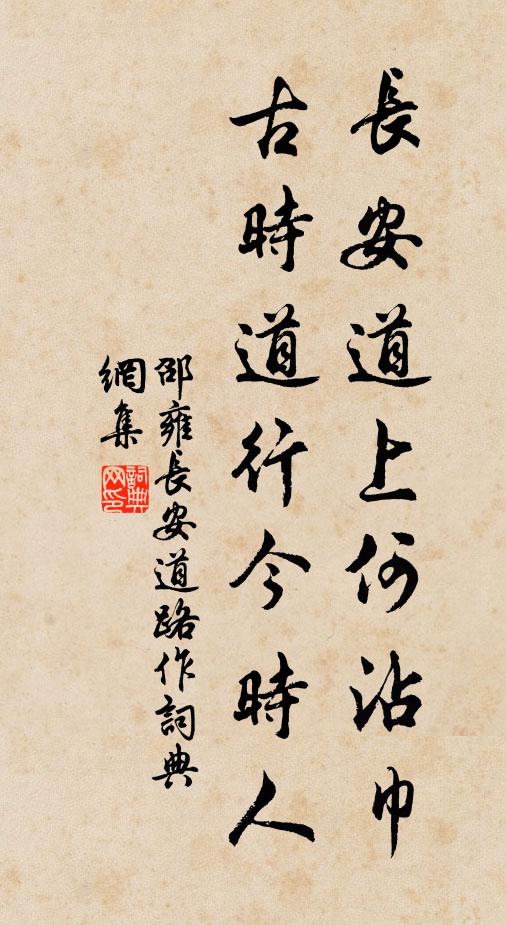 長安道上何沾巾
古時道行今時人
邵雍長安道路作詞典
網集
詞典
网印